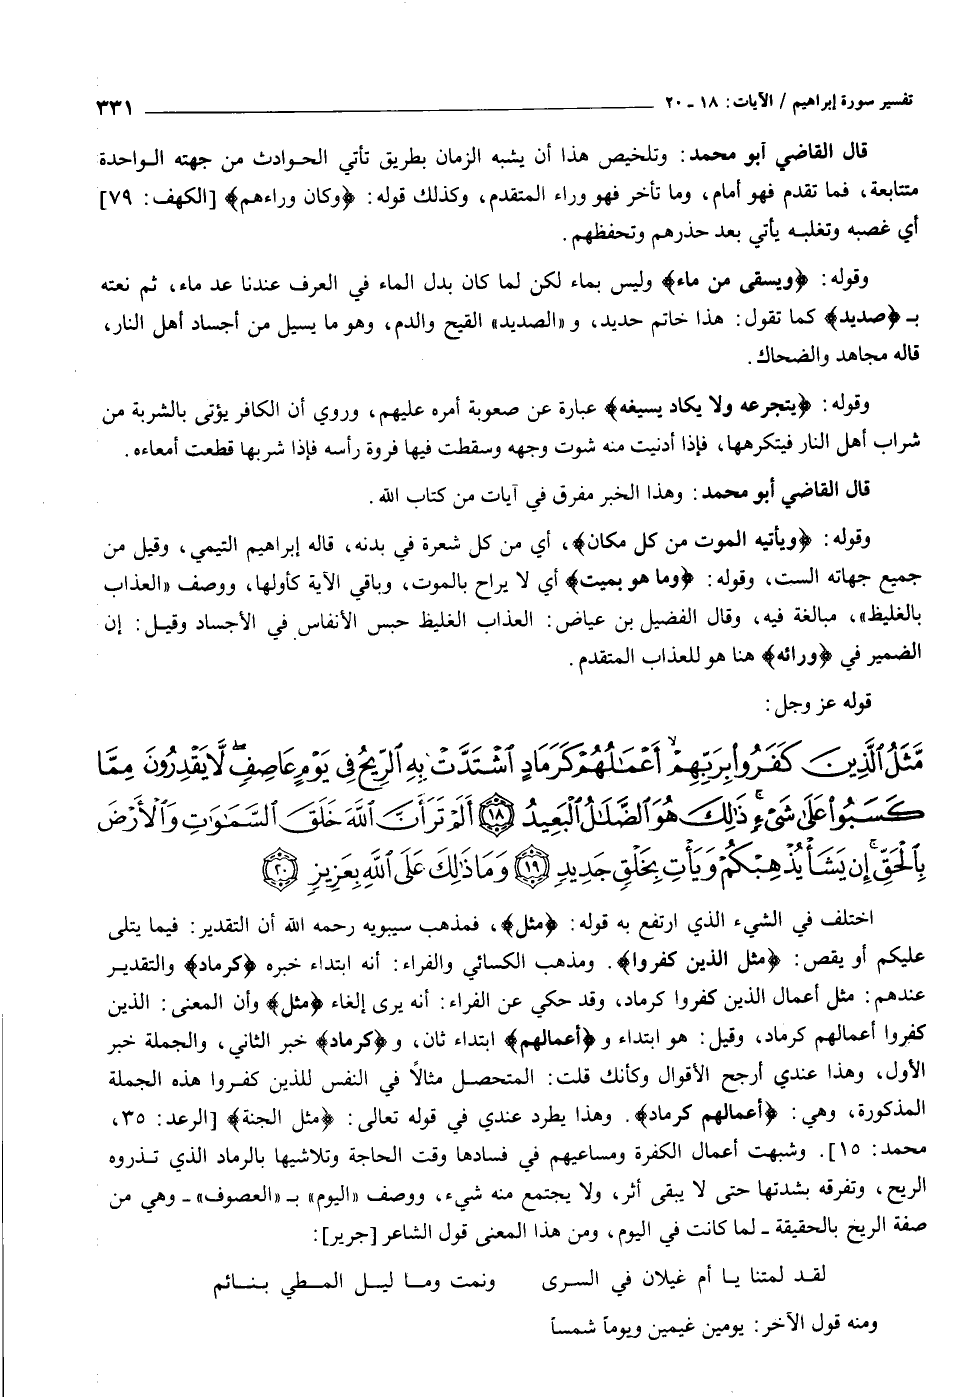 تفسير سورة إبراهيم / الآيات: ١٨ - ٢٠
٣٣١
قال القاضي أبو محمد: وتلخيص هذا أن يشبه الزمان بطريق تأتي الحوادث من جهته الواحدة
متتابعة، فما تقدم فهو أمام، وما تأخر فهو وراء المتقدم، وكذلك قوله: ﴿وكان وراءهم﴾ [الكهف: ٧٩]
أي غصبه وتغلبه يأتي بعد حذرهم وتحفظهم.
وقوله: ﴿ويسقى من ماء﴾ وليس بماء لكن لما كان بدل الماء في العرف عندنا عد ماء، ثم نعته
بـ ﴿صديد﴾ كما تقول: هذا خاتم حديد، و «الصديد» القيح والدم، وهو ما يسيل من أجساد أهل النار،
قاله مجاهد والضحاك.
وقوله: ﴿يتجرعه ولا يكاد يسيغه﴾ عبارة عن صعوبة أمره عليهم، وروي أن الكافر يؤتى بالشربة من
شراب أهل النار فيتكرهها، فإذا أدنيت منه شوت وجهه وسقطت فيها فروة رأسه فإذا شربها قطعت أمعاءه.
قال القاضي أبو محمد: وهذا الخبر مفرق في آيات من كتاب الله.
وقوله: ﴿ويأتيه الموت من كل مكان﴾، أي من كل شعرة في بدنه، قاله إبراهيم التيمي، وقيل من
جميع جهاته الست، وقوله: ﴿وما هو بميت﴾ أي لا يراح بالموت، وباقي الآية كأولها، ووصف «العذاب
بالغليظ»، مبالغة فيه، وقال الفضيل بن عياض: العذاب الغليظ حبس الأنفاس في الأجساد وقيل: إن
الضمير في ﴿ورائه﴾ هنا هو للعذاب المتقدم.
قوله عز وجل:
مَّثَلُ الَّذِينَ كَفَرُوا بِرَبِّهِمْ أَعْمَالُهُمْ كَرَمَادٍ اشْتَدَّتْ بِهِ الرِّيحُ فِي يَوْمٍ عَاصِفٍ لَّا يَقْدِرُونَ مِمَّا
كَسَبُوا عَلَى شَيْءٍ ذَلِكَ هُوَ الضَّلَالُ الْبَعِيدُ ۝١٨ أَلَمْ تَرَ أَنَّ اللَّهَ خَلَقَ السَّمَاوَاتِ وَالْأَرْضَ
بِالْحَقِّ إِن يَشَأْ يُذْهِبْكُمْ وَيَأْتِ بِخَلْقٍ جَدِيدٍ ۝١٩ وَمَا ذَلِكَ عَلَى اللَّهِ بِعَزِيزٍ ۝٢٠
اختلف في الشيء الذي ارتفع به قوله: ﴿مثل﴾، فمذهب سيبويه رحمه الله أن التقدير: فيما يتلى
عليكم أو يقص: ﴿مثل الذين كفروا﴾. ومذهب الكسائي والفراء: أنه ابتداء خبره ﴿كرماد﴾ والتقدير
عندهم: مثل أعمال الذين كفروا كرماد، وقد حكي عن الفراء: أنه يرى إلغاء ﴿مثل﴾ وأن المعنى: الذين
كفروا أعمالهم كرماد، وقيل: هو ابتداء و ﴿أعمالهم﴾ ابتداء ثان، و ﴿كرماد﴾ خبر الثاني، والجملة خبر
الأول، وهذا عندي أرجح الأقوال وكأنك قلت: المتحصل مثالاً في النفس للذين كفروا هذه الجملة
المذكورة، وهي: ﴿أعمالهم كرماد﴾. وهذا يطرد عندي في قوله تعالى: ﴿مثل الجنة﴾ [الرعد: ٣٥،
محمد: ١٥]. وشبهت أعمال الكفرة ومساعيهم في فسادها وقت الحاجة وتلاشيها بالرماد الذي تذروه
الريح، وتفرقه بشدتها حتى لا يبقى أثر، ولا يجتمع منه شيء، ووصف «اليوم» بـ «العصوف» ـ وهي من
صفة الريح بالحقيقة ـ لما كانت في اليوم، ومن هذا المعنى قول الشاعر [جرير]:
لقد لمتنا يا أم غيلان في السرى ونمت وما ليل المطي بنائم
ومنه قول الآخر: يومين غيمين ويوماً شمساً